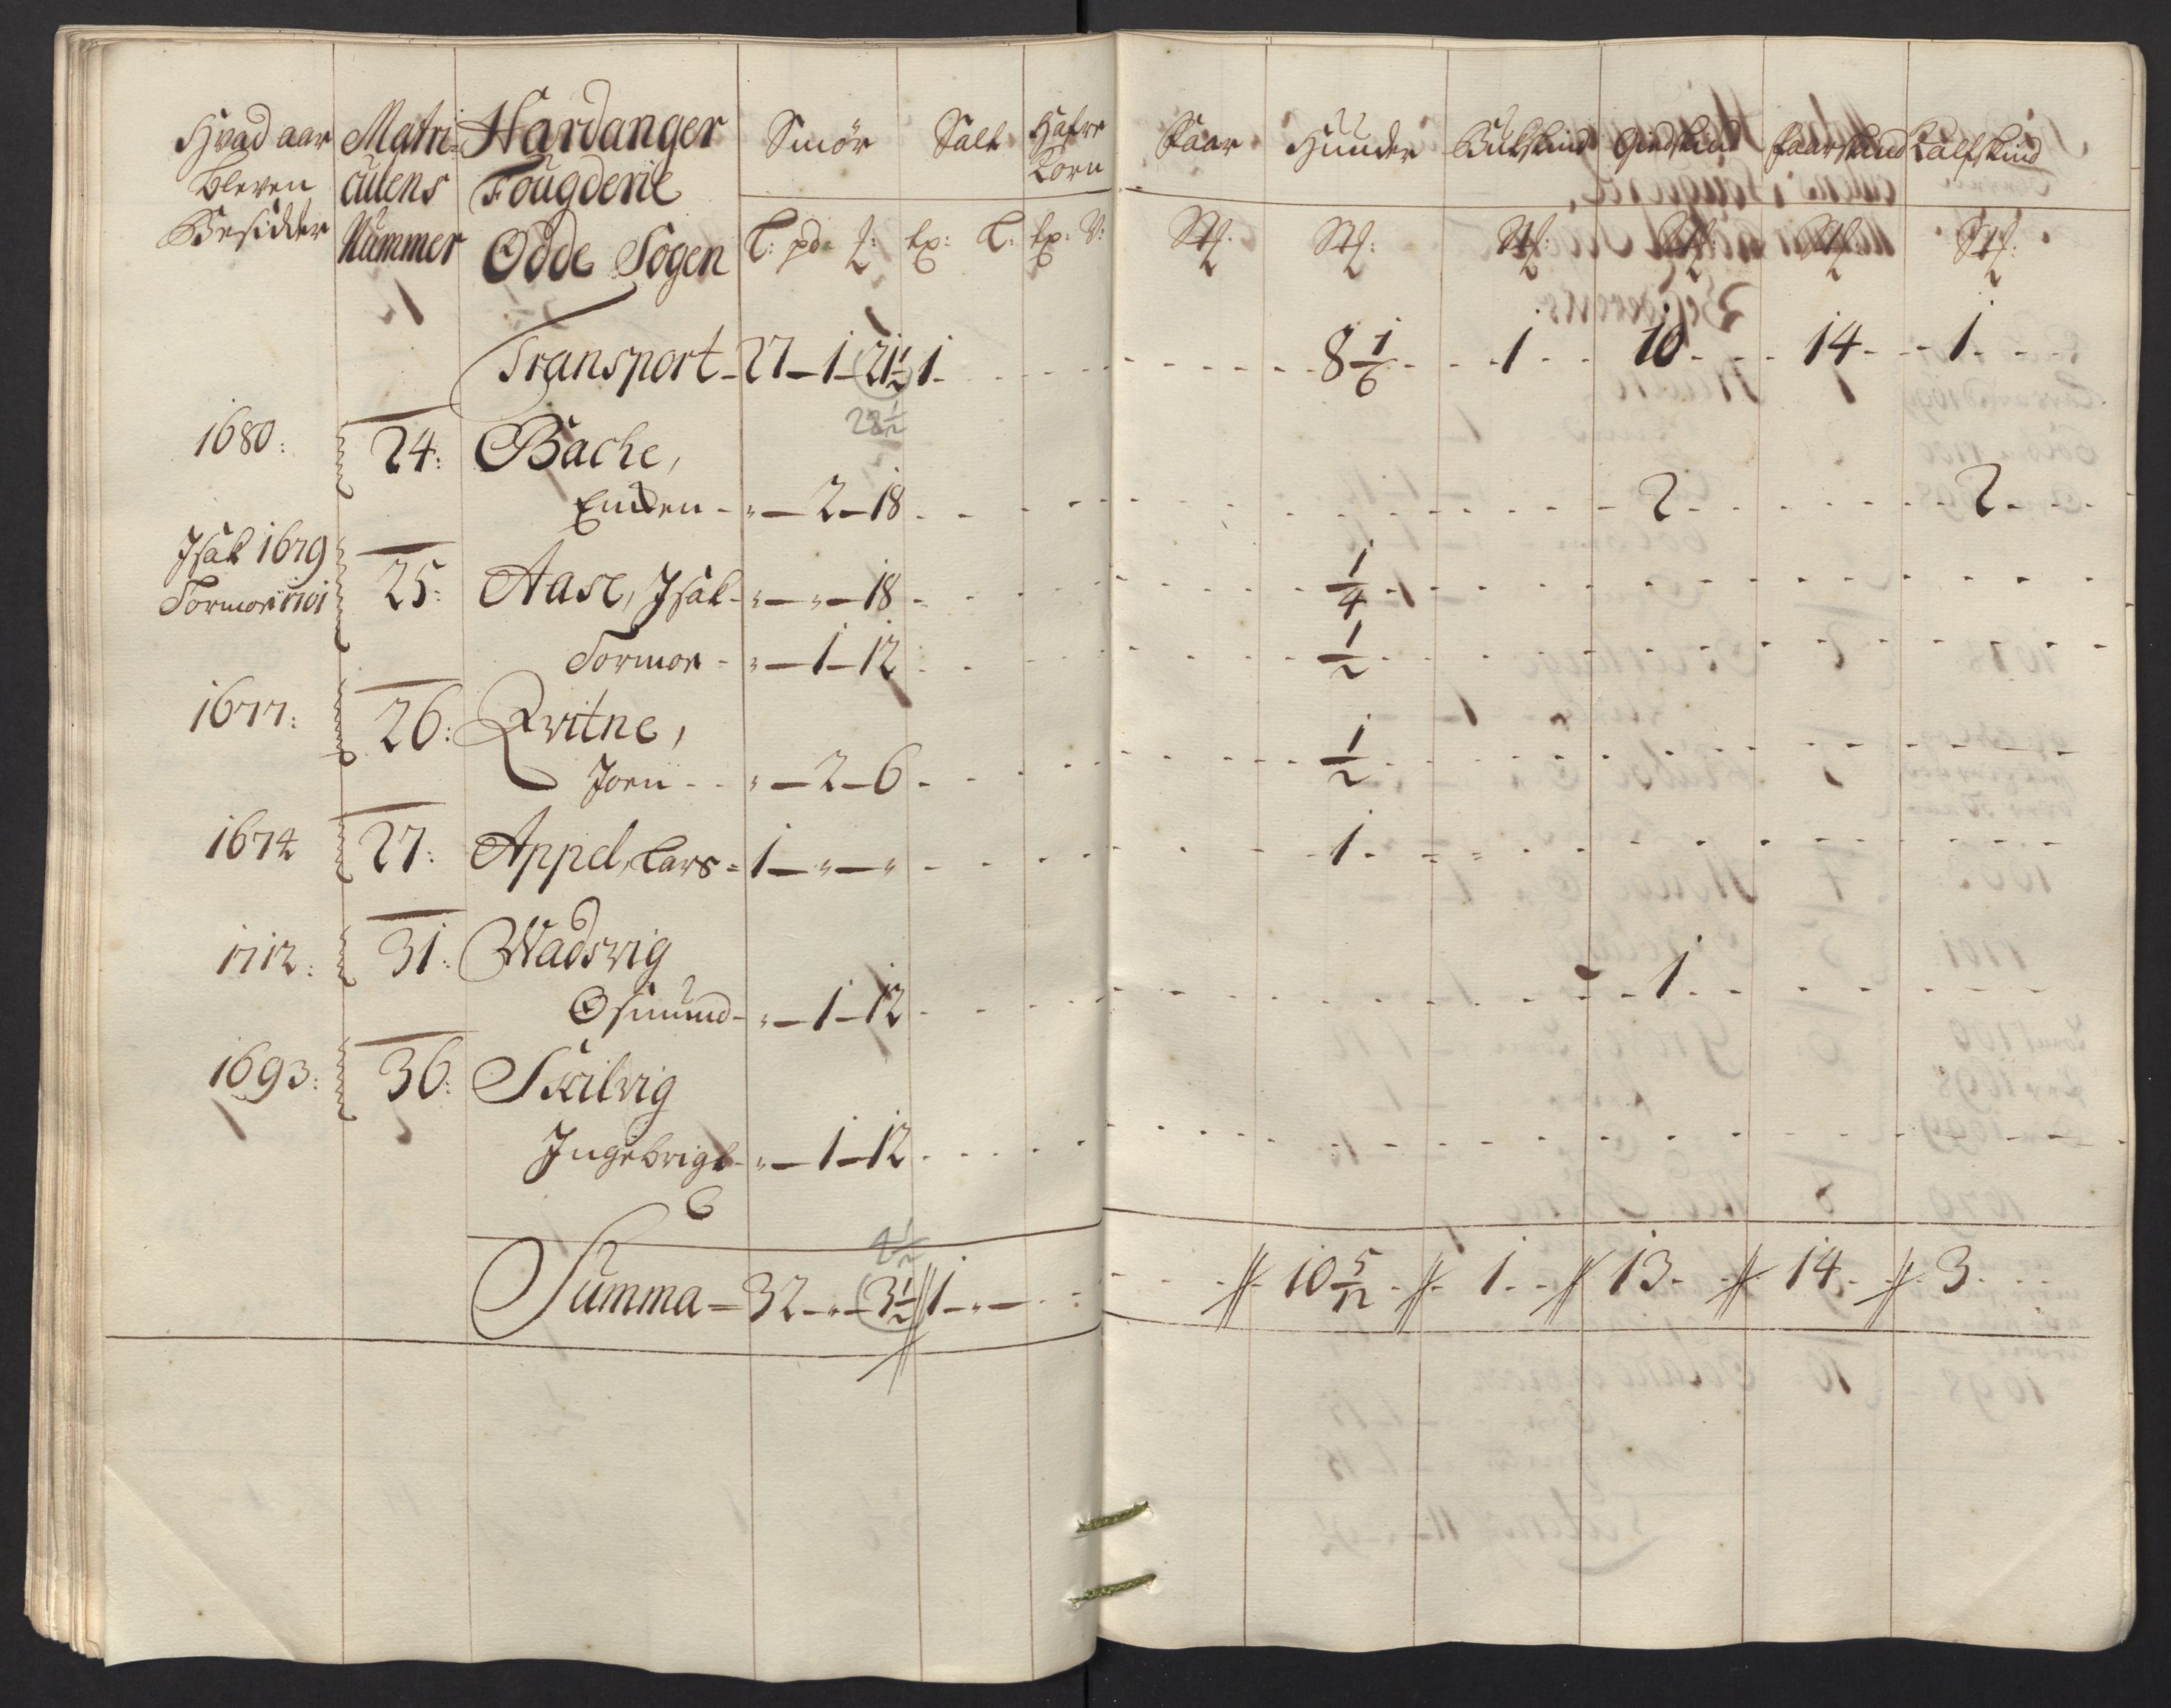 Hvad aar bleven Besidder | Matriculens Nummer | Hardanger Fougderie Odde Sogen | Smör | Salt | Hafre Korn | Faar | Huuder | Bukskind | Giedskind | Faarskind Kalfskind
L: pd: | Lp: | Lp: | Stk: | Stk: | Stk: | Stk: | Stk: | Stk:
Transport – 27 – 1 – 21 1/2 | 1 - - - 8 1/6 - - 1 - - 10 - - 14 - - 1 - -
22 1/2
1680: 24: Bache,
Enken - „ – 2 – 18 - - - 2 - - - 2 - -
Isak 1679
Tormon 1701 25: Aase, Isak - „ – „ – 18 - - - 1/4 - - -
Tormon - „ – 1 – 12 - - - 1/2 - - -
1677: 26: Qvitne,
Joen - - „ – 2 – 6 - - - 1/2 - - -
1674 27: Appel, Lars = 1 – „ – „ - - - 1 - - -
1712: 31: Wadsvig
Osmund - „ – 1 – 12 - - - 1 - - -
1693: 36: Skilvig
Ingebrigt - „ – 1 – 12 - - -
Summa = 32 – „ – 3 1/2 // 1 – „ – - - - // 10 5/12 - // - 1 - - // 13 - - // - 14 - - // 3 - - -